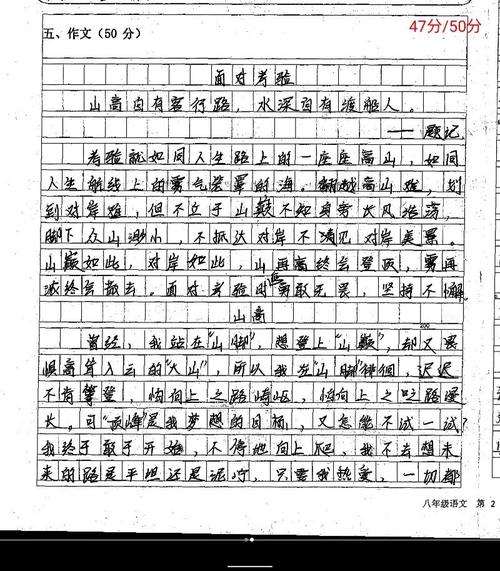 47分/50分
五、作文(50 分)
面对考验
山高自有客行路，水深自有渡船人。
——题记
考验就如同人生路上的一座座高山，如同
人生航线上的雾气笼罩的海。翻越高山难，划
到对岸难，但不立于山巅不知身旁大风浩荡，
脚下众山渺小，不抵达对岸不清见对岸美景。
山巅如此，对岸如此，山再高终会登顶，雾再
浓终会散去。面对考验时应勇敢无畏，坚持不懈。
山高
200
曾经，我站在“山脚”，想登上“山巅”，却又畏
惧高耸入云的“大山”，所以我在“山脚”徘徊，迟迟
不肯攀登，怕向上之路崎岖，怕向上之路漫
长。可“顶峰”是我梦想的目标，又怎能不试一试？
我终于敢于开始，不停地向上爬，我不去想未
来的路是平坦还是泥泞，只要我热爱，一切都
八年级语文 第 2